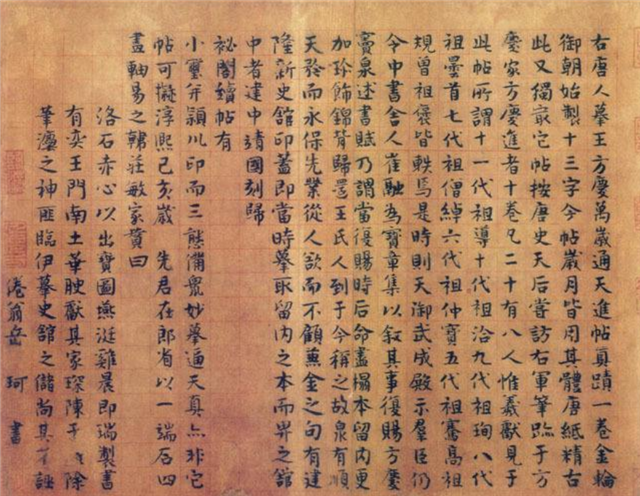 右唐人摹王方慶萬歲通天進帖真蹟一卷金輪
御朝始製十三字今帖歲月皆用其體唐紙精古
此又獨冣它帖按唐史天后嘗訪右軍筆跡于方
慶家方慶進者十卷凡二十有八人惟羲獻見于
此帖所謂十一代祖導十代祖洽九代祖珣八代
祖曇首七代祖僧綽六代祖仲寶五代祖騫高祖
規曾祖褒皆軼焉是時則天御武成殿示羣臣仍
令中書舍人崔融為寶章集以叙其事復賜方慶
竇泉述書賦乃謂當復賜時后命盡榻本留內更
加珍飾錦背歸還王氏人到于今稱之故泉有順
天矜而永保先業從人欲而不顧兼金之句有建
隆新史館印蓋即當時摹取留內之本而畀之館
中者建中靖國刻歸
祕閣續帖有
小璽并潁川印而三態備衆妙摹通天真亦非它
帖可擬淳熙己亥歲 先君在郎省以一端石四
畫軸易之韓莊敏家贊曰
洛石赤心以出寶圖燕涎雞晨即瑞製書
有奕王門南土華腴獻其家琛陳于 除
筆濃之神匪臨伊摹史館之儲尚其 誣
倦翁岳 珂 書